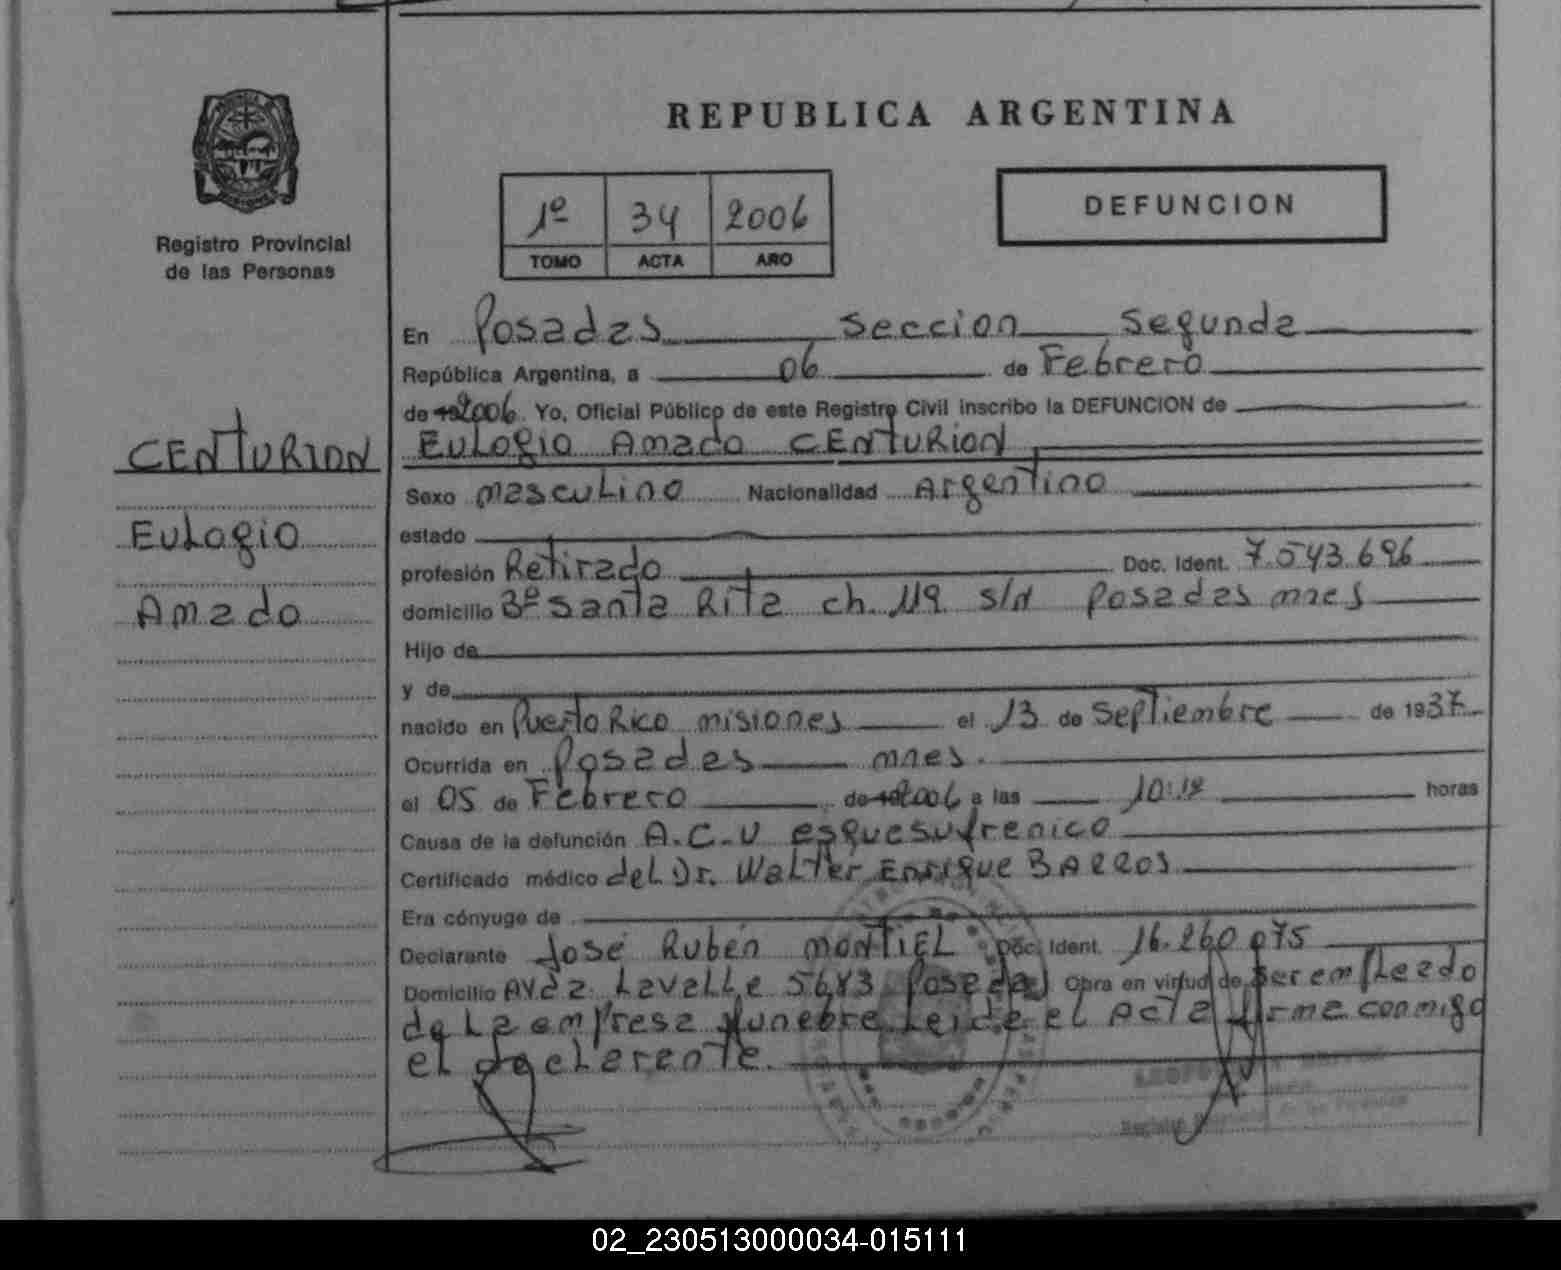 REPUBLICA ARGENTINA
Registro Provincial
de las Personas
1º 34 2006
TOMO ACTA AÑO
DEFUNCION
CENTURION
Eulogio
Amado
En Posadas seccion segunda
República Argentina, a 06 de Febrero
de 2006. Yo, Oficial Público de este Registro Civil inscribo la DEFUNCION de
Eulogio Amado CENTURION
Sexo masculino Nacionalidad Argentino
estado
profesión Retirado Doc. Ident. 7.543.696
domicilio Bº Santa Rita ch. 119 s/n Posadas mnes
Hijo de
y de
nacido en Puerto Rico misiones el 13 de septiembre de 1937
Ocurrida en Posadas mnes.
el 05 de Febrero de 2006 a las 10:18 horas
Causa de la defunción A.C.V esquesufrenico
Certificado médico del Dr. Walter Enrique BARROS
Era cónyuge de
Declarante José Rubén MONTIEL Doc. Ident. 16.260.075
Domicilio Avda. Lavalle 5683 Posadas Obra en virtud de ser empleado
de la empresa funebre Leida el Acta firma conmigo
el declarente.
02_230513000034-015111